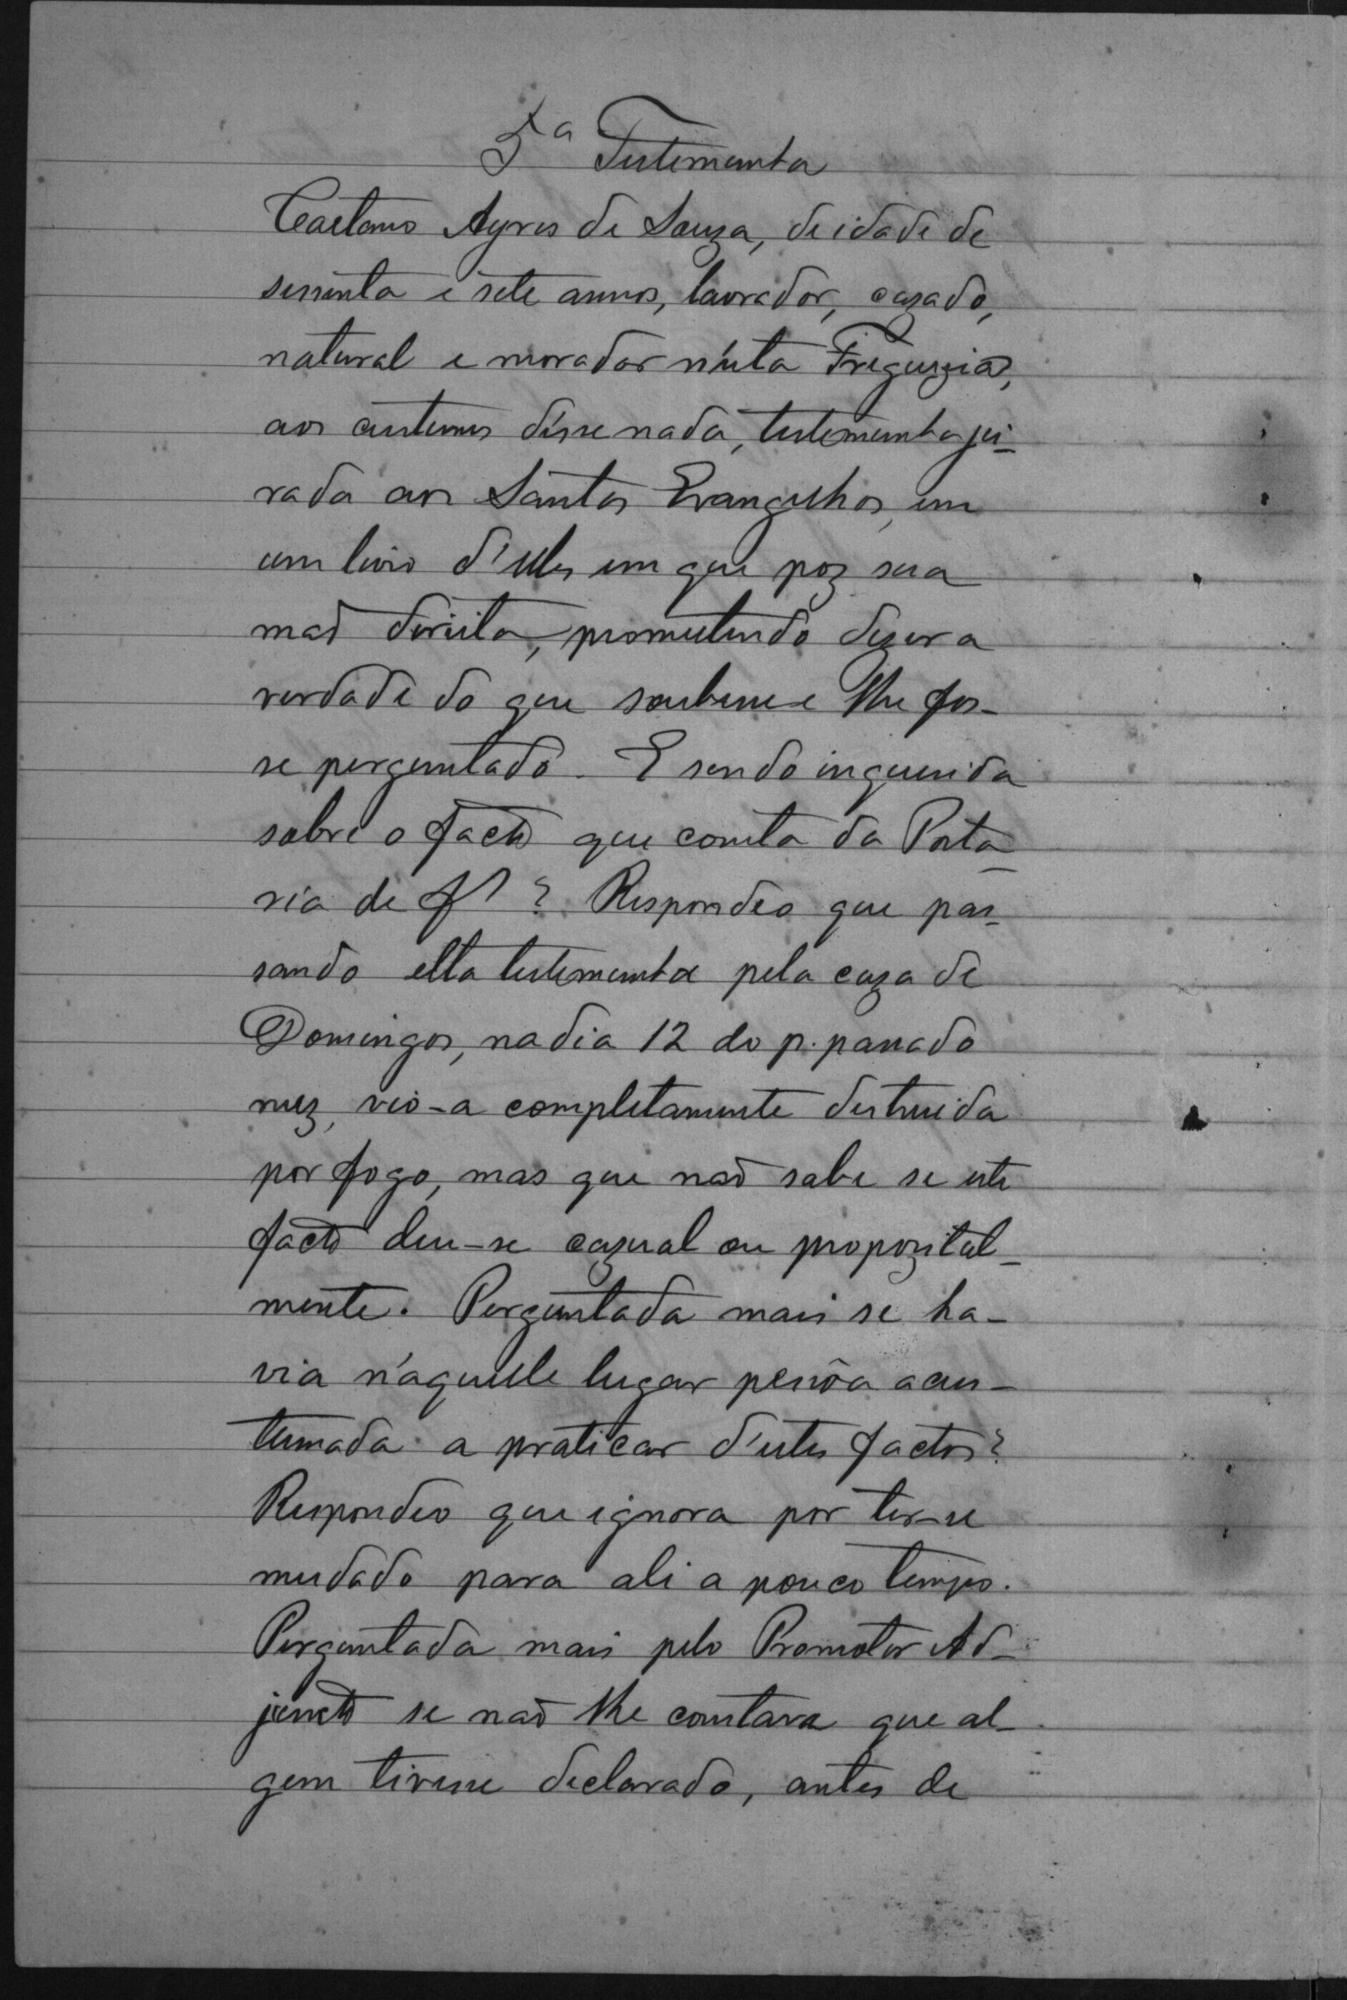 5ª Testemunha
Caetano Ayres de Souza, de idade de
sessenta e sete annos, lavrador, cazado,
natural e morador n'esta Freguezia,
aos custumes disse nada, testemunha ju-
rada aos Santos Evangelhos, em
um livro d'elles em que poz sua
maõ direita, promettendo dizer a
verdade do que soubesse e lhe fos-
se perguntado. E sendo inquerida
sobre o facto que consta da Porta-
ria de fl ? Respondeo que pas-
sando ella testemunha pela caza de
Domingos, na dia 12 do p. passado
mez, vio-a completamente destruida
por fogo, mas que naõ sabe se este
facto deu-se cazual ou propozital-
mente. Perguntada mais se ha-
via n'aquelle lugar pessôa acus-
tumada a praticar d'estes factos?
Respondeo que ignora por ter-se
mudado para ali a pouco tempo.
Perguntada mais pelo Promotor Ad-
juncto se naõ lhe constava que al-
gem tivesse declarado, antes de